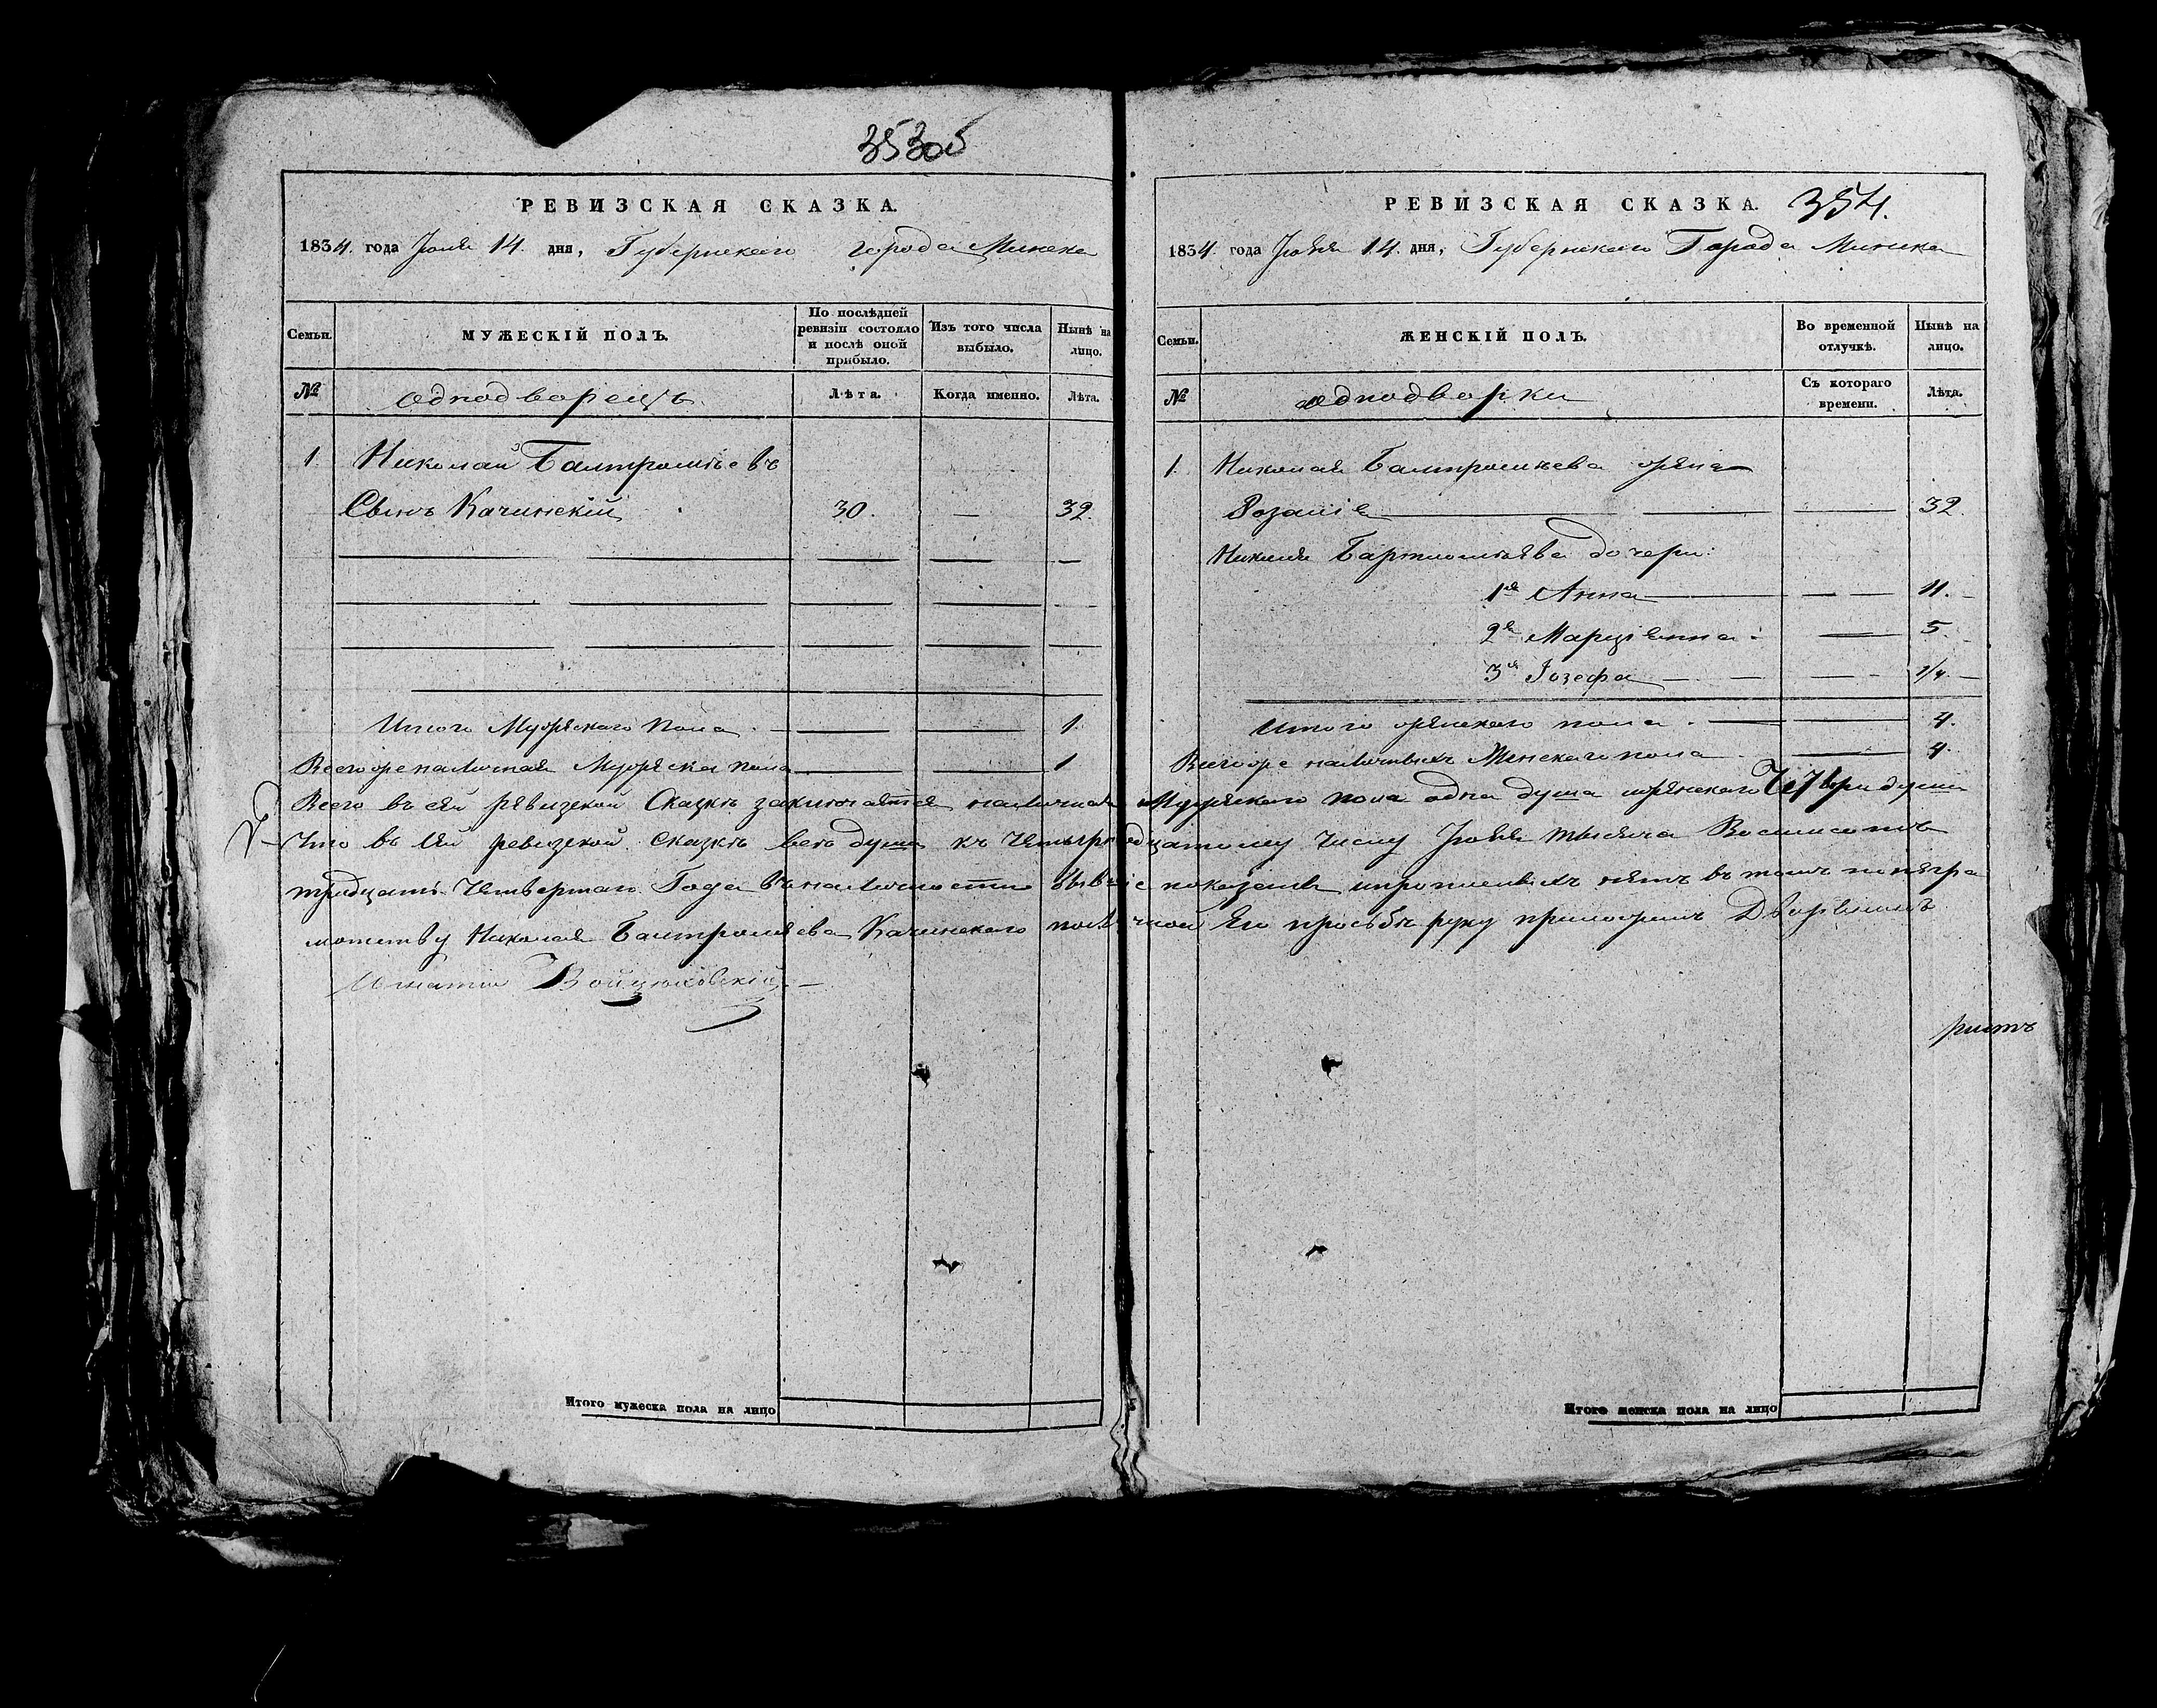 353об
РЕВИЗСКАЯ СКАЗКА.
1834. года Іюня 14. дня, Губернскаго города Минска
Семьи. МУЖЕСКІЙ ПОЛЪ. По послѣдней ревизіи состояло и послѣ оной прибыло. Изъ того числа выбыло. Нынѣ на лицо.
№ Однодворецъ. Лѣта. Когда именно. Лѣта.
1. Николай Балтромѣевъ
Сынъ Качинскій 30. — 32.
Итого Мужескаго пола 1.
Всего же наличная Мужеска пола 1
Итого мужеска пола на лицо
354.
РЕВИЗСКАЯ СКАЗКА.
1834. года Іюня 14. дня, Губернскаго Города Минска
Семьи. ЖЕНСКІЙ ПОЛЪ. Во временной отлучкѣ. Нынѣ на лицо.
№ Однодворки Съ котораго времени. Лѣта.
1. Николая Балтромѣева жена
Розалія — 32.
Николая Бартломѣева дочери:
1я Анна — 11.
2я Марціянна — 5.
3я Іозефа — 1/4.
Итого женскаго пола — 4.
Всего же наличныхъ Женскаго пола — 4.
Всего въ сей ревизской Сказкѣ заключается наличная Мужескаго пола одна душа женскаго Четыри души
Что въ сей ревизской сказкѣ всѣ души къ Четырнадцатому числу Іюня тысяча Восемсотъ
тридцать Четвертаго Года въ наличности бывшіе показаны и прописныхъ нѣтъ въ томъ по неграмотству
Николая Балтромѣева Качинскаго по личной Его прозьбѣ руку приложилъ Дворянинъ
Игнатій Войцюховскій
ристъ
Итого женска пола на лицо